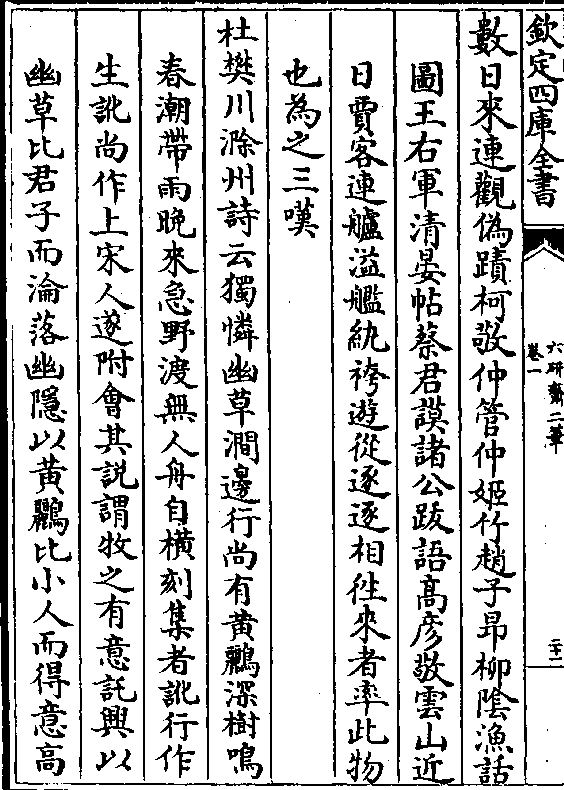 欽定四庫全書
六研齋二筆
卷一
二十一
數日來連觀偽蹟柯敬仲管仲姬竹趙子昂柳陰漁話
圖王右軍清晏帖蔡君謨諸公跋語高彥敬雲山近
日賈客連艫溢艦紈袴遊從逐逐相徃來者率此物
也為之三嘆
杜樊川滁州詩云獨憐幽草澗邊行尚有黄鸝深樹鳴
春潮帶雨晚來急野渡無人舟自横刻集者訛行作
生訛尚作上宋人遂附會其説謂牧之有意託興以
幽草比君子而淪落幽隱以黄鸝比小人而得意高